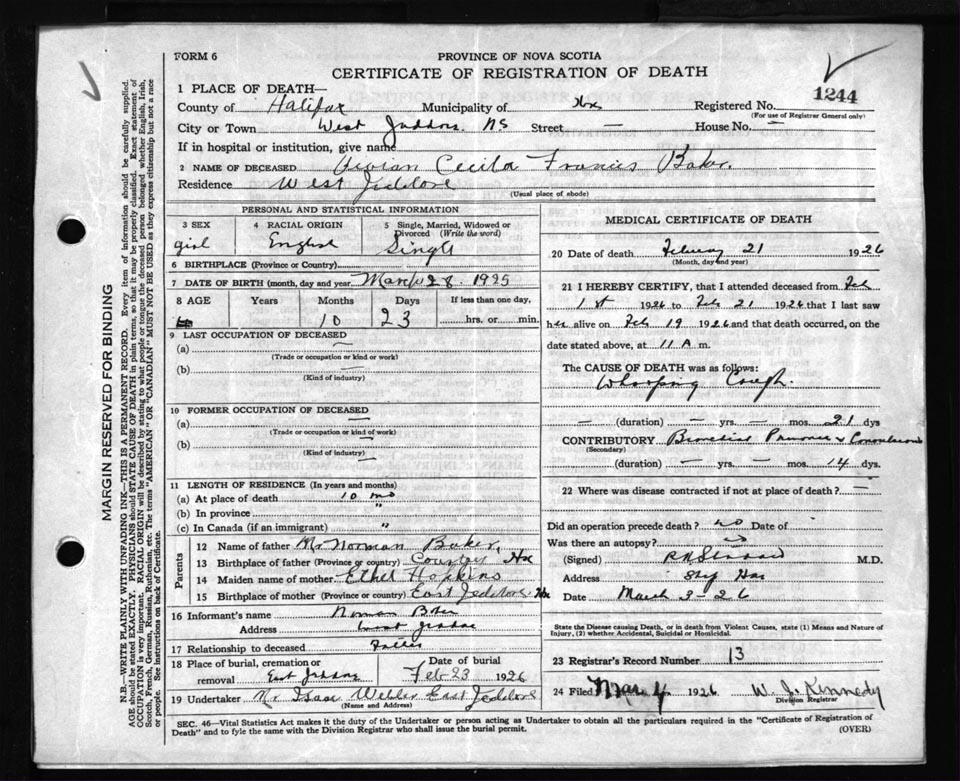 FORM 6
PROVINCE OF NOVA SCOTIA
CERTIFICATE OF REGISTRATION OF DEATH
1244
1 PLACE OF DEATH—
County of Halifax Municipality of Hx Registered No.
(For use of Registrar General only)
City or Town West Jeddore NS Street — House No. —
If in hospital or institution, give name
2 NAME OF DECEASED Vivian Cecila Francis Baker.
Residence West Jeddore
(Usual place of abode)
PERSONAL AND STATISTICAL INFORMATION
3 SEX 4 RACIAL ORIGIN 5 Single, Married, Widowed or Divorced (Write the word)
girl English Single
6 BIRTHPLACE (Province or Country)
7 DATE OF BIRTH (month, day and year) March 28. 1925
8 AGE Years Months Days If less than one day,
10 23 hrs. or min.
9 LAST OCCUPATION OF DECEASED
(a) —
(Trade or occupation or kind or work)
(b) —
(Kind of industry)
10 FORMER OCCUPATION OF DECEASED
(a) —
(Trade or occupation or kind of work)
(b) —
(Kind of industry)
11 LENGTH OF RESIDENCE (In years and months)
(a) At place of death 10 mo
(b) In province "
(c) In Canada (if an immigrant) "
Parents
12 Name of father Mr Norman Baker,
13 Birthplace of father (Province or country) Country Hx
14 Maiden name of mother Ethel Hopkins
15 Birthplace of mother (Province or country) East Jeddore Hx
16 Informant's name Norman Baker
Address West Jeddore
17 Relationship to deceased Father
18 Place of burial, cremation or removal East Jeddore Date of burial Feb 23 1926
19 Undertaker Mr. Isaac Webber East Jeddore
(Name and Address)
MEDICAL CERTIFICATE OF DEATH
20 Date of death February 21 1926
(Month, day and year)
21 I HEREBY CERTIFY, that I attended deceased from Feb
1st 1926 to Feb 21 1926 that I last saw
her alive on Feb 19 1926 and that death occurred, on the
date stated above, at 11 A m.
The CAUSE OF DEATH was as follows:
Whooping Cough.
— (duration) — yrs. — mos. 21 dys
CONTRIBUTORY Bronchial Pneumonia & Convulsions
(Secondary)
(duration) — yrs. — mos. 14 dys.
22 Where was disease contracted if not at place of death? —
Did an operation precede death? no Date of —
Was there an autopsy? no
(Signed) M.D.
Address
Date March 3-26
State the Disease causing Death, or in death from Violent Causes, state (1) Means and Nature of
Injury, (2) whether Accidental, Suicidal or Homicidal.
23 Registrar's Record Number 13
24 Filed Mar 4 1926 W. J. Kennedy
Division Registrar
SEC. 46—Vital Statistics Act makes it the duty of the Undertaker or person acting as Undertaker to obtain all the particulars required in the "Certificate of Registration of
Death" and to fyle the same with the Division Registrar who shall issue the burial permit.
(OVER)
MARGIN RESERVED FOR BINDING
N.B.—WRITE PLAINLY WITH UNFADING INK—THIS IS A PERMANENT RECORD. Every item of information should be carefully supplied.
AGE should be stated EXACTLY. PHYSICIANS should STATE CAUSE OF DEATH in plain terms, so that it may be properly classified. Exact statement of
OCCUPATION is very important. RACIAL ORIGIN will be described by stating to what people or tongue the deceased person belonged whether English, Irish,
Scotch, French, German, Russian, Ruthenian, etc. The terms "AMERICAN" OR "CANADIAN" MUST NOT BE USED as they express citizenship but not a race
or people. See instructions on back of Certificate.